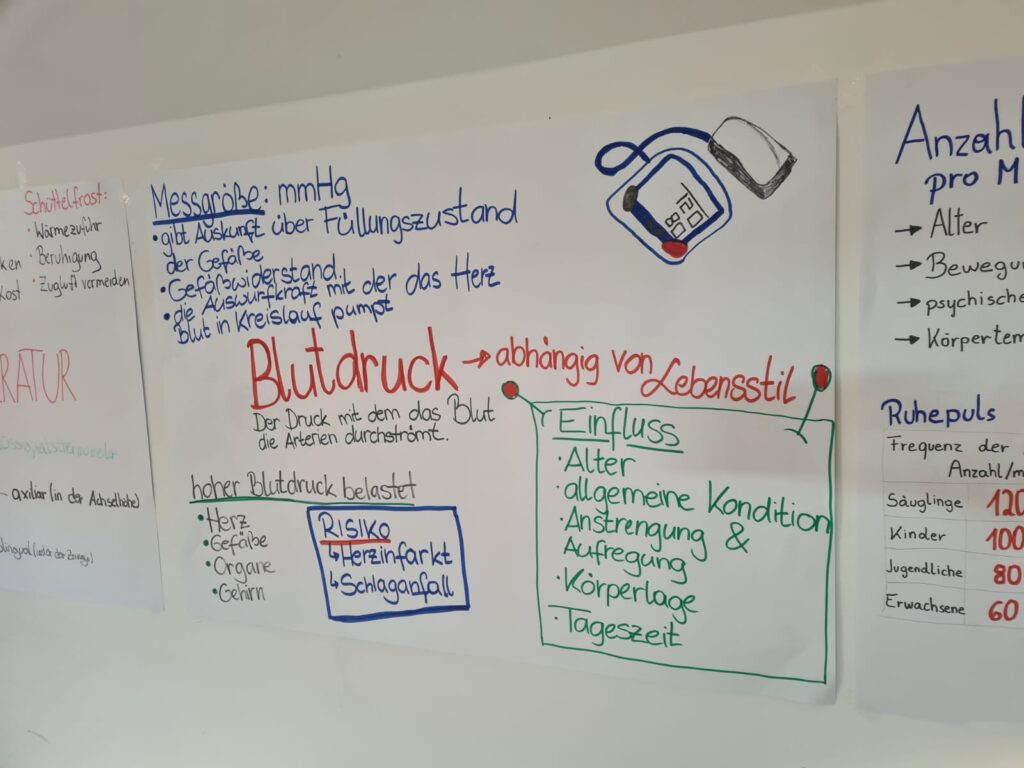 Schüttelfrost:
· Wärmezufuhr
· Beruhigung
· Zugluft vermeiden
RATUR
axiliar (in der Achselhöhle)
Messgröße: mmHg
• gibt Auskunft über Füllungszustand
der Gefäße
• Gefäßwiderstand
• die Auswurfkraft mit der das Herz
Blut in Kreislauf pumpt
120
80
Blutdruck → abhängig von Lebensstil
Der Druck mit dem das Blut
die Arterien durchströmt.
hoher Blutdruck belastet
• Herz
• Gefäße
• Organe
• Gehirn
RISIKO
↳ Herzinfarkt
↳ Schlaganfall
Einfluss
· Alter
· allgemeine Kondition
· Anstrengung &
Aufregung
· Körperlage
· Tageszeit
Anzahl
pro M
→ Alter
→ Bewegu
→ psychische
→ Körpertem
Ruhepuls
Frequenz der
Anzahl/m
Säuglinge 120
Kinder 100
Jugendliche 80
Erwachsene 60